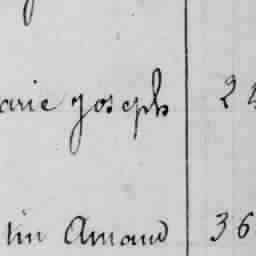 arie joseph 2
tin Amand 36